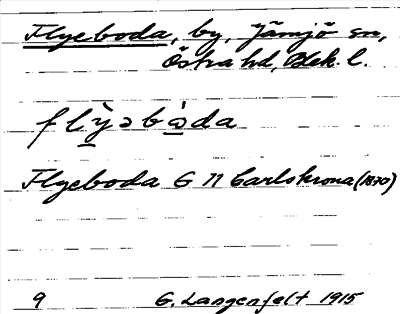 Flyeboda, by, Jämjö sn,
Östra hd, Blek. l.
flỳəbòda
Flyeboda G N Carlskrona (1870)
9 G. Langenfelt 1915